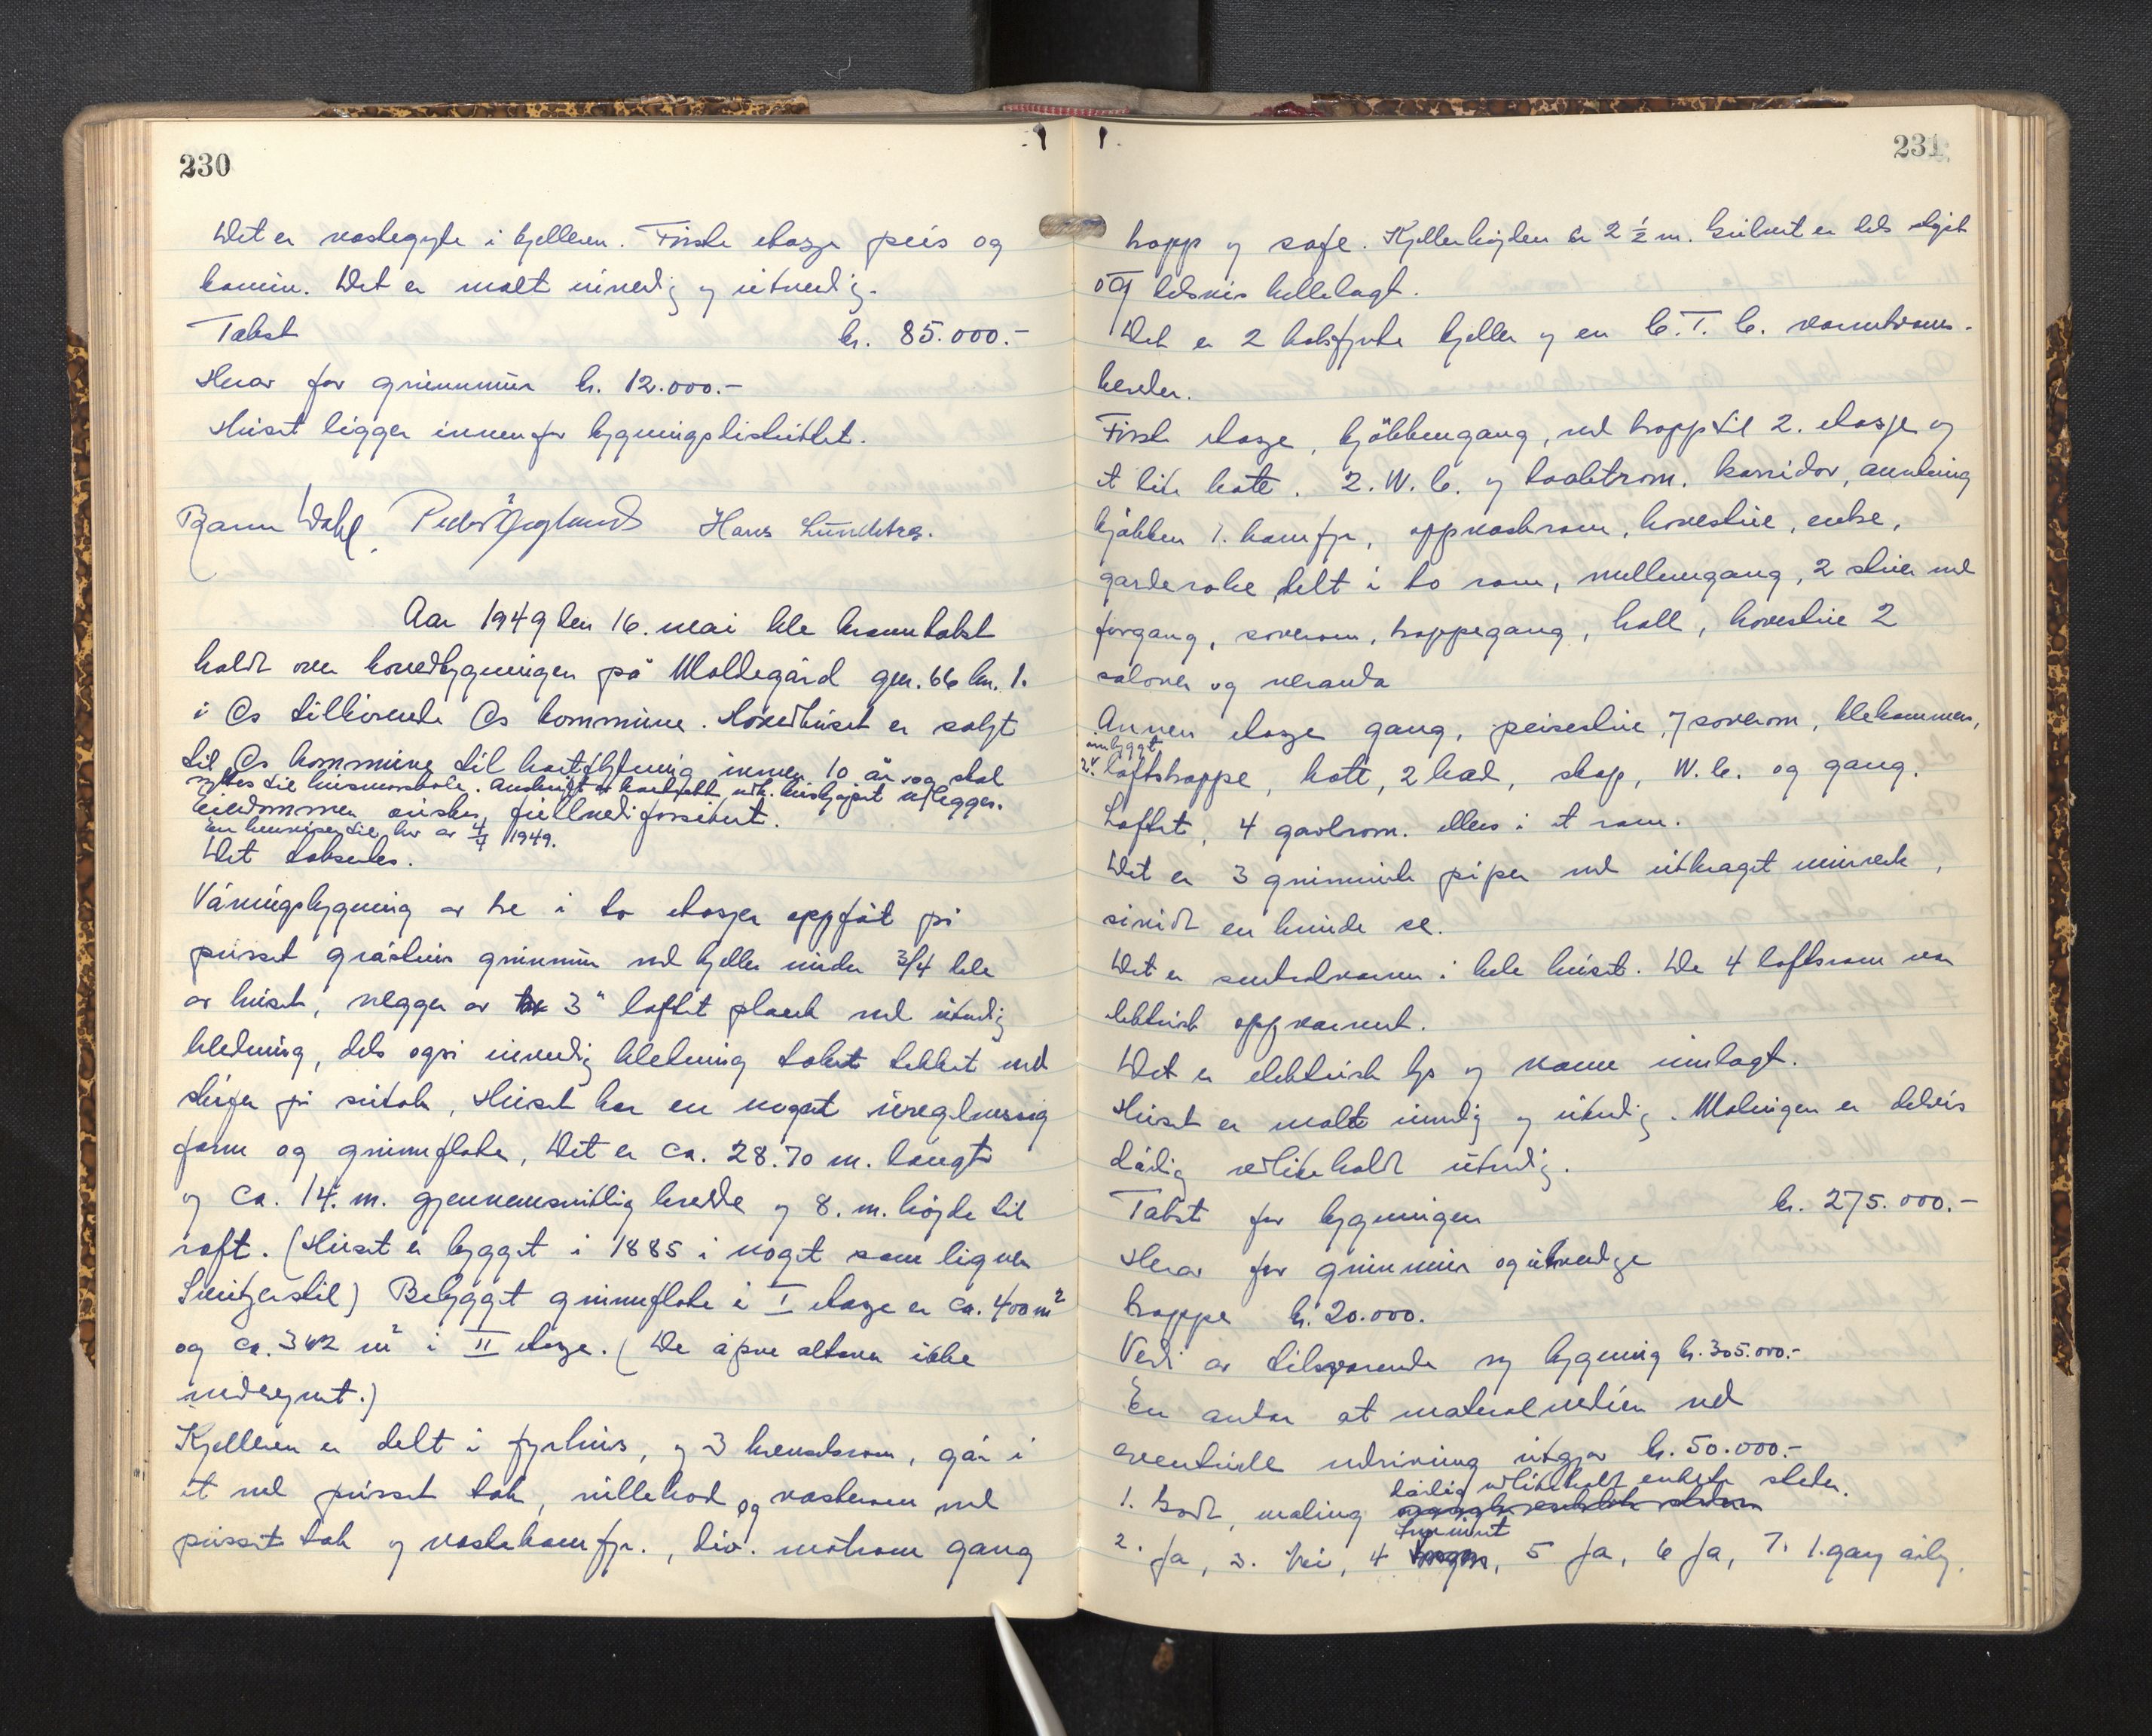 230
Det er vaskegryte i kjelleren. Første etasje peis og
kamin. Det er malt innvendig og utvendig.
Takst kr. 85.000.-
Herav for grunnmur kr. 12.000.-
Huset ligger innenfor bygningsdistriktet.
Bjarne Dahl, Peder Hans Lundetræ.
Aar 1949 den 16. mai ble branntakst
holdt over hovedbygningen på Moldegård gnr. 66 bn. 1.
i Os tilhørende Os kommune. Hovedhuset er solgt
til Os kommune til bortflytning innen 10 år og skal
nyttes til husmorskole. Avskrift av kontrakt vdk. huskjøpet vedlegges.
Eiendommen ønskes fullverdiforsikret.
En henviser til brev av 4/4 1949.
Det takseredes.
Våningsbygning av tre i to etasjer oppført på
pusset gråsteins grunnmur med kjeller under 3/4 dele
av huset, vegger av 3" laftet plank med utvendig
kledning, dels også innvendig kledning taket tekket med
skifer på sutak, Huset har en noget uregelmessig
form og grunnflate, Det er ca. 28.70 m. langt
og ca. 14. m. gjennemsnittlig bredde og 8. m. høyde til
raft. (Huset er bygget i 1885 i noget som ligner
Sveitzerstil) Bebygget grunnflate i I etasje er ca. 400 m²
og ca. 342 m² i II etasje. (De åpne altaner ikke
medregnet.)
Kjelleren er delt i fyrhus, og 3 brenselsrom, går i
et med pusset tak, rullebod og vaskerom med
pusset tak og vaskekomfyr., div. matrom gang
231
trapp og safe. Kjellerhøyden er 2 ½ m. Gulvet er dels støpt
og delsvis hellelagt.
Det er 2 koksfyrte kjeller og en C.T.C. varmtvanns-
bereder.
Første etasje, kjøkkengang, med trapp til 2. etasje og
et lite kott. 2. W.C. og toalettrom. korridor, anretning
kjøkken 1. komfyr, oppvaskrom, hovestue, entre,
garderobe delt i to rom, mellemgang, 2 stuer med
forgang, soverom, trappegang, hall, hovestue 2
saloner og veranda
Annen etasje gang, peisestue, 7 soverom, klekammer,
innbygget
2. loftstrappe, kott, 2 bad, skap, W.C. og gang.
Loftet, 4 gavlrom. ellers i et rom.
Det er 3 grunnmurte piper med utkraget murverk,
såvidt en kunde se.
Det er sentralvarme i hele huset. De 4 loftsrom var
elektrisk oppvarmet.
Det er elektrisk lys og vann innlagt.
Huset er malt innvendig og utvendig. Malingen er delvis
dårlig vedlikeholdt utvendig.
Takst for bygningen kr. 275.000.-
Herav for grunnmur og utvendige
trapper kr. 20.000.
Verdi av tilsvarende ny bygning kr. 305.000.-
En antar at materialverdien ved
eventuelle nedrivning utgjør kr. 50.000.-
1. Godt, maling dårlig vedlikeholdt enkelte steder.
2. Ja, 3. Nei, 4 5 Ja, 6 Ja, 7. 1. gang årlig.